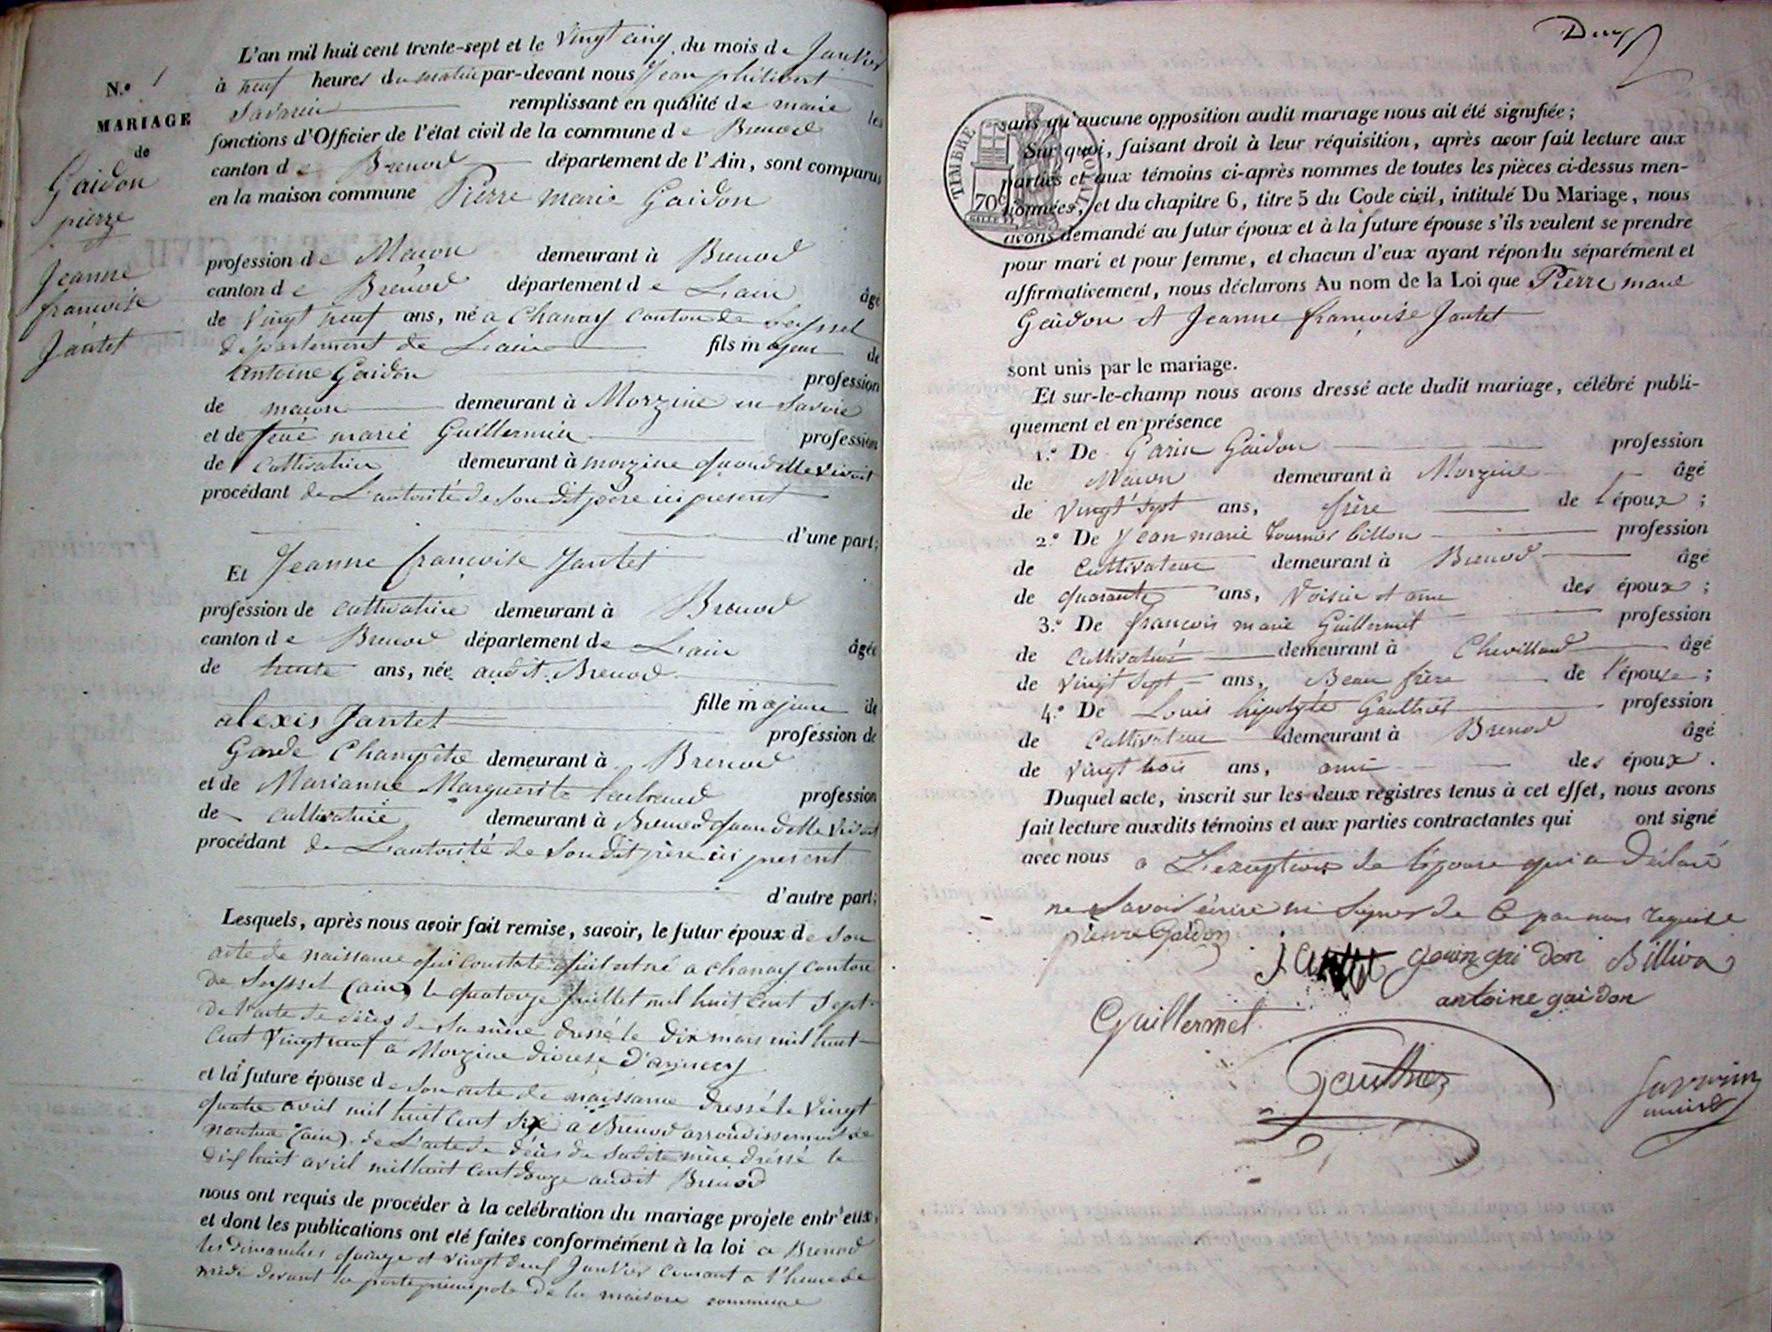 N.º 1
MARIAGE
de
Gaidon
pierre
Jeanne
françoise
Jantet
L'an mil huit cent trente-sept et le vingt cinq du mois de Janvier
à neuf heures du matin par-devant nous Jean philibert
Savarin remplissant en qualité de maire les
fonctions d'Officier de l'état civil de la commune de Brenod
canton de Brenod département de l'Ain, sont comparus
en la maison commune Pierre marie Gaidon
profession de Maçon demeurant à Brenod
canton de Brenod département de L'ain âgé
de vingt neuf ans, né a Chanay Canton de Seyssel
département de L'ain fils majeur de
Antoine Gaidon profession
de maçon demeurant à Morzine en Savoie
et de feue marie Guillermin profession
de Cultivatrice demeurant à morzine quand elle vivait
procédant de L'autorité de Son dit père ici present
d'une part;
Et Jeanne françoise Jantet
profession de cultivatrice demeurant à Brenod
canton de Brenod département de L'ain âgée
de trente ans, née audit Brenod
fille majeure de
alexis Jantet profession de
Garde Champêtre demeurant à Brenod
et de Marianne Marguerite profession
de cultivatrice demeurant à Brenod quand elle vivait
procédant de L'autorité de Son dit père ici present
d'autre part;
Lesquels, après nous avoir fait remise, savoir, le futur époux de son
acte de naissance qui constate qu'il est né a chanay canton
de Seyssel (ain) le quatorze Juillet mil huit Cent Sept
de l'acte de décès de Sa mère dressé le dix mars mil huit
Cent Vingt neuf a Morzine diocese D'annecy
et la future épouse de son acte de naissance dressé le vingt
quatre avril mil huit Cent Six a Brenod arrondissement de
nantua (ain) de L'acte de décès de Sadite mère dressé le
dix huit avril mil huit Cent douze audit Brenod
nous ont requis de procéder à la celébration du mariage projeté entr'eux,
et dont les publications ont été faites conformément à la loi a Brenod
les dimanches quinze et vingt deux Janvier courant a l'heure de
midi devant la porte principale de la maison commune
sans qu'aucune opposition audit mariage nous ait été signifiée;
Sur quoi, faisant droit à leur réquisition, après avoir fait lecture aux
parties et aux témoins ci-après nommes de toutes les pièces ci-dessus men-
tionnées, et du chapitre 6, titre 5 du Code civil, intitulé Du Mariage, nous
avons demandé au futur époux et à la future épouse s'ils veulent se prendre
pour mari et pour femme, et chacun d'eux ayant répondu séparément et
affirmativement, nous déclarons Au nom de la Loi que Pierre marie
Gaidon et Jeanne françoise Jantet
sont unis par le mariage.
Et sur-le-champ nous avons dressé acte dudit mariage, célébré publi-
quement et en présence
1.º De Garin Gaidon profession
de Maçon demeurant à Morzine âgé
de vingt Sept ans, frère de l'époux;
2.º De Jean marie tournier billon profession
de Cultivateur demeurant à Brenod âgé
de quarante ans, Voisin et ami des époux;
3.º De françois marie Guillermet profession
de Cultivateur demeurant à Chevillard âgé
de vingt Sept ans, Beau frère de l'épouse;
4.º De Louis hipolyte Gauthier profession
de Cultivateur demeurant à Brenod âgé
de vingt trois ans, ami des époux.
Duquel acte, inscrit sur les deux registres tenus à cet effet, nous avons
fait lecture auxdits témoins et aux parties contractantes qui ont signé
avec nous a L'exeption de l'épouse qui a déclaré
ne Savoir écrire ni Signer de Ce par nous requise
pierre Gaidon
Jantet
gaidon
Billion
antoine gaidon
Guillermet
Gauthier
Savarin
maire
TIMBRE ROYAL
70c